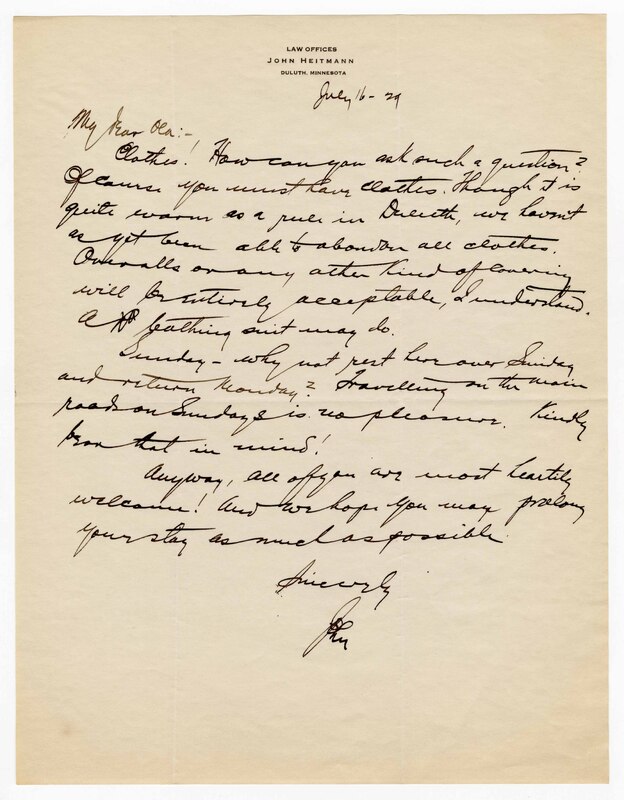 LAW OFFICES
JOHN HEITMANN
DULUTH, MINNESOTA
July 16 - 29
My Dear Ola:-
Clothes! How can you ask such a question?
Of course you must have clothes. Though it is
quite warm as a rule in Duluth, we havn't
as yet been able to abandon all clothes.
Overalls or any other kind of covering
will be entirely acceptable, I understand.
A bathing suit may do.
Sunday - why not rest here over Sunday
and return Monday? Travelling on the main
roads on Sundays is no pleasure. Kindly
bear that in mind!
Anyway, all of you are most heartily
welcome! And we hope you may prolong
your stay as much as possible.
Sincerely
John